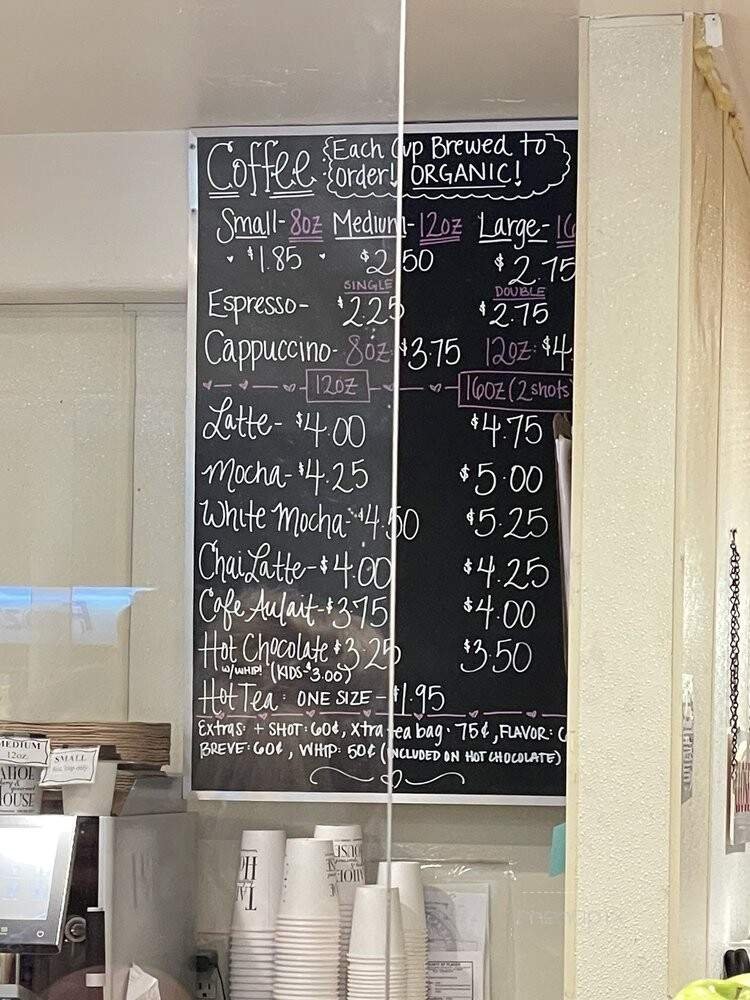 Coffee Each Cup Brewed to
order! ORGANIC!
Small-8oz Medium-12oz Large-16
$1.85 $2.50 $2.75
SINGLE DOUBLE
Espresso- $2.25 $2.75
Cappuccino- 8oz: $3.75 12oz: $4.
12oz 16oz (2 shots)
Latte- $4.00 $4.75
Mocha- $4.25 $5.00
White Mocha- $4.50 $5.25
Chai Latte- $4.00 $4.25
Cafe Au lait- $3.75 $4.00
Hot Chocolate $3.25 $3.50
w/WHIP! (KIDS-$3.00)
Hot Tea: ONE SIZE - $1.95
Extras: + SHOT: 60¢, Xtra tea bag: 75¢, FLAVOR:
BREVE: 60¢, WHIP: 50¢ (INCLUDED ON HOT CHOCOLATE)
MEDIUM
12oz
SMALL
HOUSE